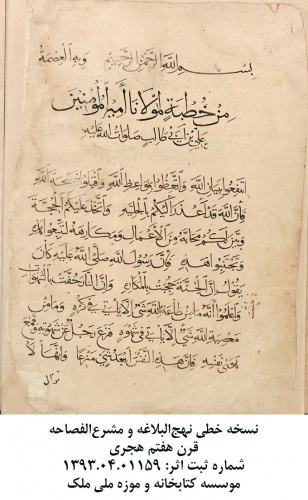 بسم الله الرحمن الرحيم وبه العصمة
من خطبة لمولانا أمير المؤمنين
علي بن أبي طالب صلوات الله عليه
انتفعوا ببيان الله واتعظوا بمواعظ الله واقبلوا نصيحة الله
فإن الله قد أعذر إليكم بالجلية واتخذ عليكم الحجة
وبين لكم محابه من الأعمال ومكارهه لتتبعوا هذه
وتجتنبوا هذه فإن رسول الله صلى الله عليه كان
يقول إن الجنة حجبت بالمكاره وإن النار حفت بالشهوات
واعلموا أنه ما من طاعة الله شيء إلا يأتي في كره وما من
معصية الله شيء إلا يأتي في شهوة فرحم رجلا نزع عن شهوته وقمع
هوى نفسه فإن هذه النفس أبعد شيء منزعا وإنها لا
نسخه خطی نهج‌البلاغه و مشرع‌الفصاحه
قرن هفتم هجری
شماره ثبت اثر: ۱۳۹۳.۰۴.۰۱۱۵۹
موسسه کتابخانه و موزه ملی ملک